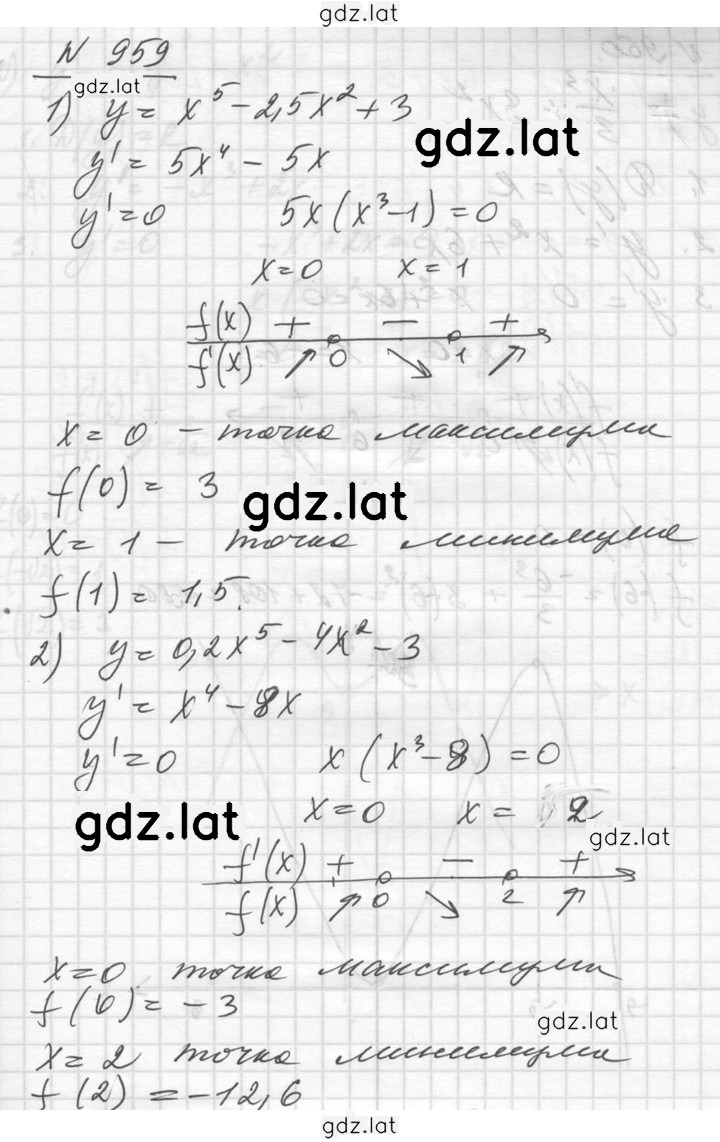 gdz.lat
N 959
gdz.lat
1) y = x⁵ - 2,5x² + 3
gdz.lat
y' = 5x⁴ - 5x
y' = 0 5x(x³-1) = 0
x=0 x=1
f(x) + - +
f'(x) ↗ 0 ↘ 1 ↗
x = 0 - точка максимума
f(0) = 3
gdz.lat
x = 1 - точка минимума
f(1) = 1,5.
2) y = 0,2x⁵ - 4x² - 3
y' = x⁴ - 8x
y' = 0 x(x³-8) = 0
gdz.lat
x=0 x = 2
gdz.lat
f'(x) + - +
f(x) ↗ 0 ↘ 2 ↗
x=0 точка максимума
f(0) = -3
gdz.lat
x = 2 точка минимума
f(2) = -12,6
gdz.lat